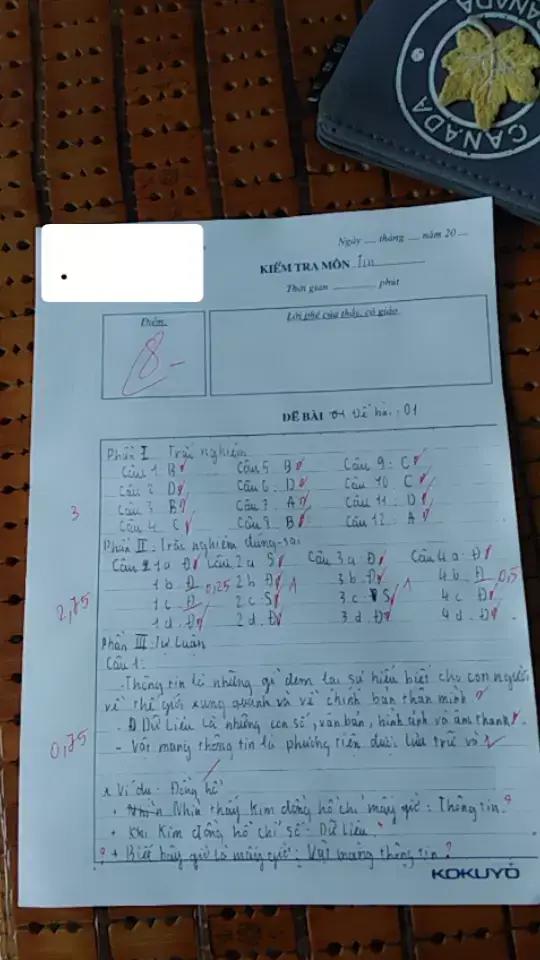 CANADA
CANADA
Ngày ... tháng ... năm 20 ...
KIỂM TRA MÔN Tin
Thời gian ............ phút
Điểm
Lời phê của thầy, cô giáo
8
ĐỀ BÀI Đề bài: 01
Phần I Trắc nghiệm
Câu 1 B Câu 5 B Câu 9: C
Câu 2 D Câu 6. D Câu 10 C
Câu 3 B Câu 7 A Câu 11: D
Câu 4 C Câu 8. B Câu 12: A
3
Phần II: Trắc nghiệm đúng-sai
Câu 1a Đ Câu 2a S Câu 3a Đ Câu 4a Đ
1b Đ 0,25 2b Đ 1 3b Đ 1 4b Đ 0,5
1c Đ 2c S 3c S 4c Đ
1d Đ 2d Đ 3d Đ 4d Đ
2,75
Phần III: Tự Luận
Câu 1:
- Thông tin là những gì đem lại sự hiểu biết cho con người
về thế giới xung quanh và về chính bản thân mình
- Dữ Liệu là những con số, văn bản, hình ảnh và âm thanh.
- Vật mang thông tin là phương tiện được lưu trữ và
0,75
Ví dụ: Đồng hồ
+ Nhìn thấy kim đồng hồ chỉ mấy giờ: Thông tin ?
+ Khi kim đồng hồ chỉ số: Dữ Liệu
? + Biết bây giờ là mấy giờ: Vật mang thông tin ?
KOKUYO